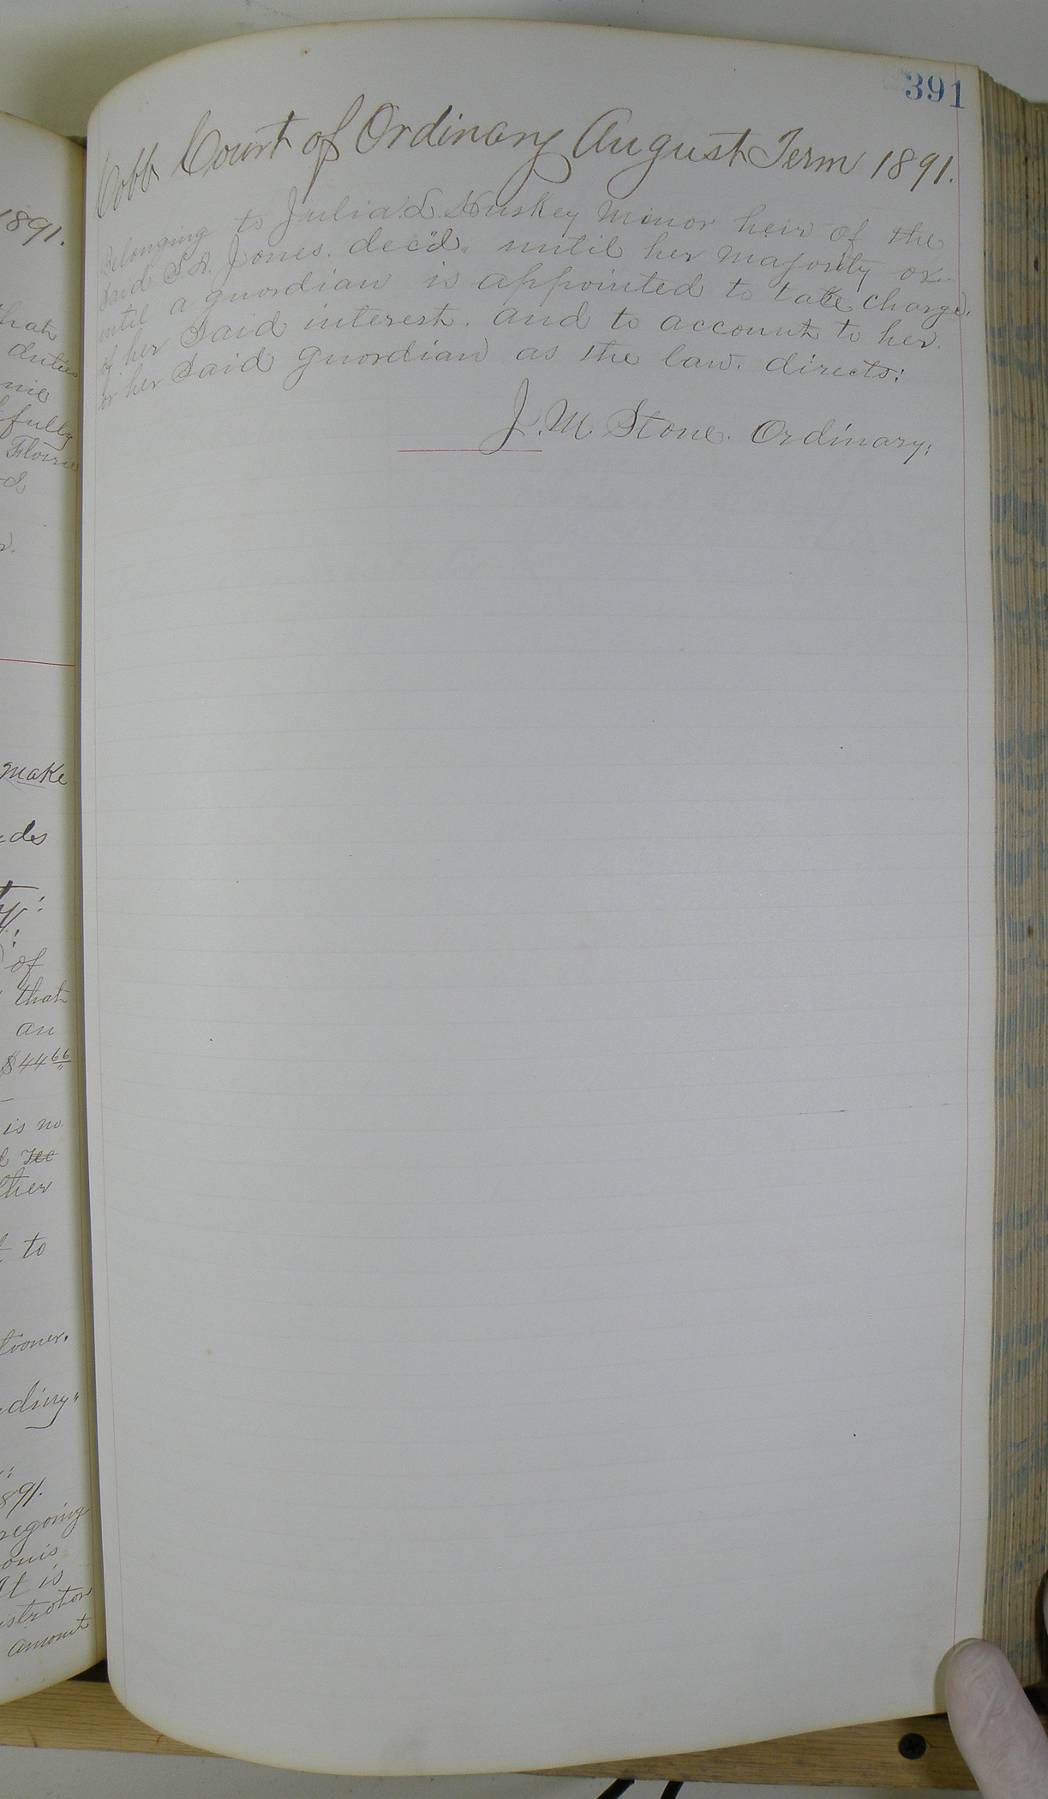 1891.
that
duties
me
fully
d
make
ds
ty:
of
that
an
$44 66
is no
ther
to
tioner.
dinary"
891.
regoing
onis
It is
istrator
amount
391
Cobb Court of Ordinary August Term 1891.
Belonging to Julia L Huskey minor heir of the
said S.R. Jones. dec'd. until her majority or
until a guardian is appointed to take charge.
of her said interest. and to account to her.
or her said guardian as the law. directs:
J. M Stone. Ordinary;